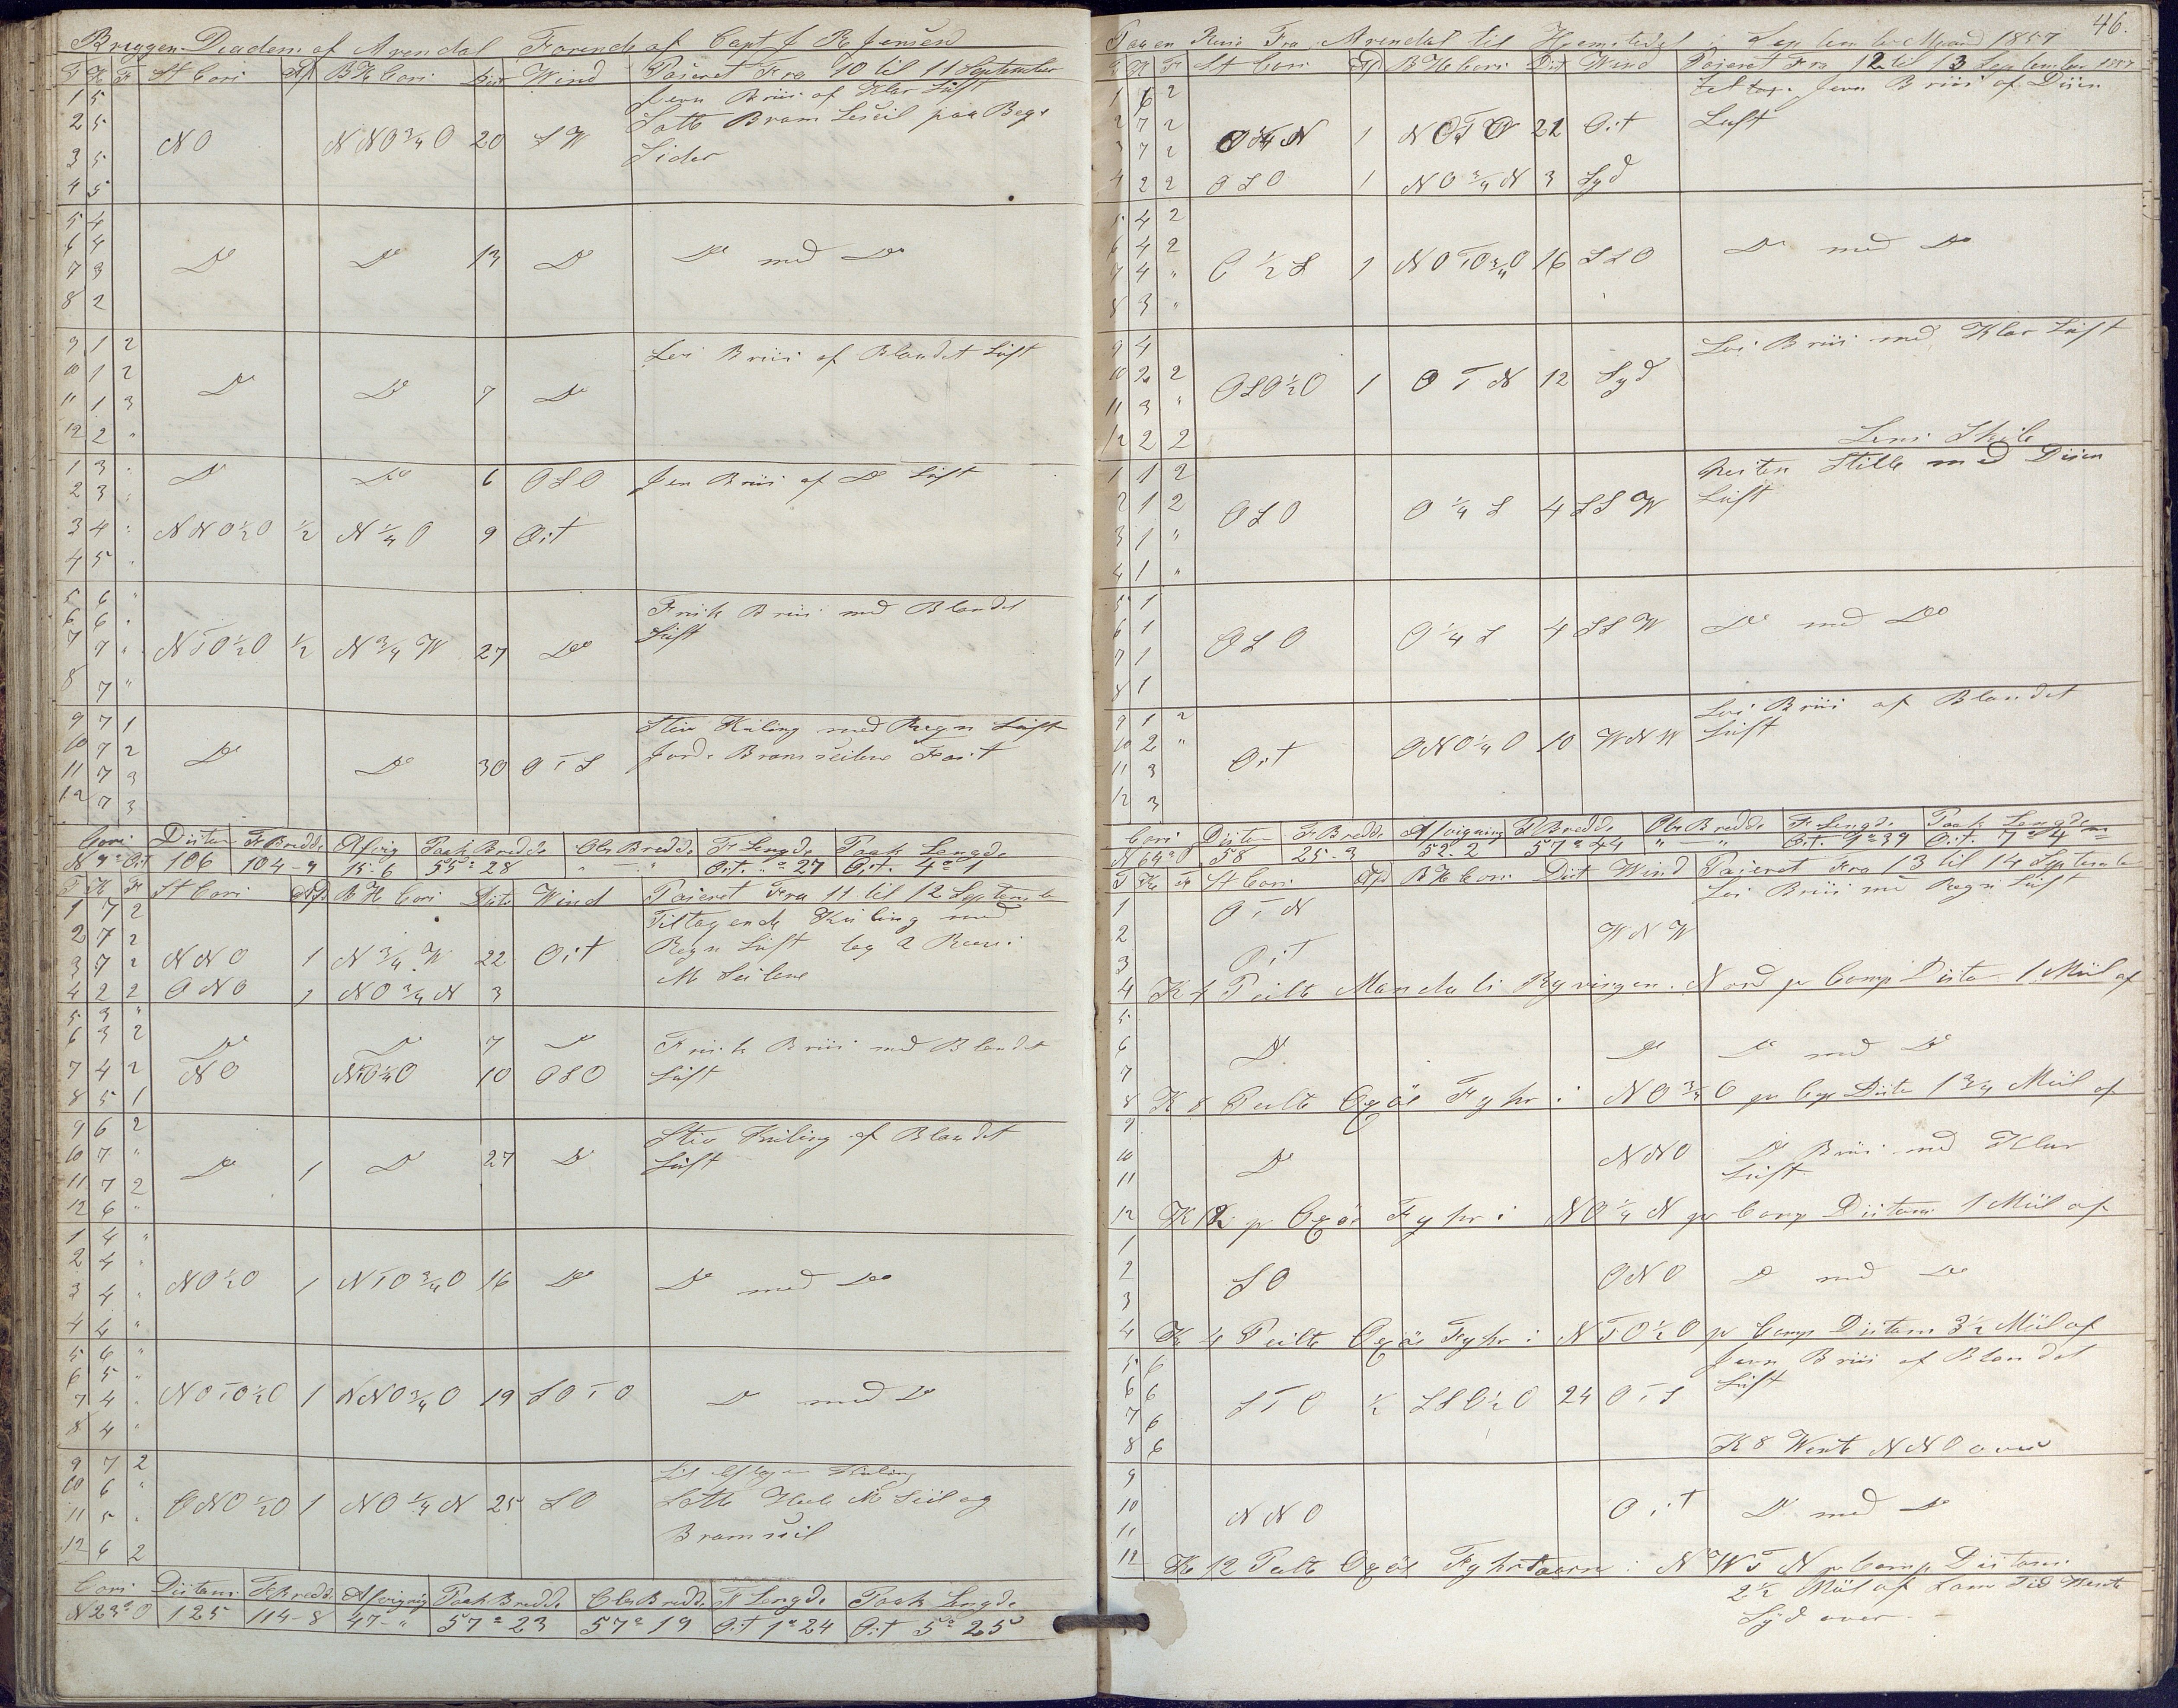 Briggen Diadem af Arendal Førende af Capt J R Jensen
T K F St Cors Afd BH Cors Dist Wind Passeret Fra 10 til 11 September
1 5 Jevn Briis af Klar Luft
2 5 Satte Bram Leseil paa Begs
NO N NO 3/4 O 20 S W
3 5 Sider
4 5
5 4
6 4
Do Do 13 Do Do med Do
7 3
8 2
9 1 2 Lei Briis af Blandet Luft
10 1 2
Do Do 7 Do
11 1 3
12 2 "
1 3 " Do Do 6 OSO Jevn Briis af Do Luft
2 3 "
3 4 " NNO 1/2 O 1/2 N 1/4 O 9 Ost
4 5 "
5 6 " Frisk Briis med Blandet
6 6 " Luft
7 7 " NTO 1/2 O 1/2 N 3/4 W 27 Do
8 7 "
9 7 1 Stiv Kuling med Regn Luft
10 7 2 Do Do 30 OTS Bramseilene Fast
11 7 3
12 7 3
Cors Distan F Bredde Afvig Paak Bredde Obs Bredde F Lengde Paak Lengde
N 9° Ost 106 104-9 15-6 55° 28 " " Ost "° 27 Ost 4° 1
T K F St Cors Afd BH Cors Dist Wind Passeret Fra 11 til 12 September
1 7 2 Tiltagende Kuling med
2 7 2 Regn Luft tog 2 Reev i
3 7 2 NNO 1 N 3/4 W 22 Ost M Seilene
4 2 2 ONO 1 NO 3/4 N 3
5 3 "
6 3 2 Do Do 7 Do Frisk Briis med Blandet
7 4 2 NO NTO 1/4 O 10 OSO Luft
8 5 1
9 6 2 Stiv Kuling af Blandet
10 7 " Do 1 Do 27 Do Luft
11 7 2
12 6 "
1 4 "
2 4 "
NO 1/2 O 1 NTO 3/4 O 16 Do Do med Do
3 4 "
4 4 "
5 6 "
6 5 "
7 4 " NOTO 1/2 O 1 NNO 3/4 O 19 SOTO Do med Do
8 4 "
9 7 2 Kuling
10 6 " Satte Hele M Seil og
ONO 1/2 O 1 NO 1/4 N 25 SO
11 5 " Bramseil
12 6 2
Cors Distans F Bredd Afvigning Paak Bredde Obs Bredde F Lengde Paak Lengde
N 23° O 125 114-8 47-" 57° 23 57° 19 Ost 1° 24 Ost 5° 25
46.
Paa en Reise Fra Arendal til September Maaned 1857
T K F St Cors Afd BH Cors Dist Wind Passeret Fra 12 til 13 September 1857
1 6 2 Jevn Briis af Diisen
2 7 2 Luft
3 7 2 1 NOTO 21 Ost
4 2 2 OSO 1 NO 3/4 N 3 Syd
5 4 2
6 4 2
O 1/2 S 1 NOTO 3/4 O 16 SSO Do med Do
7 4 "
8 3 "
9 4 Lei Briis med Klar Luft
10 2 2 OSO 1/2 O 1 OTN 12 Syd
11 3 "
12 2 2
1 1 2 Nesten Stille med Diisen
2 1 2 OSO O 1/4 S 4 SSW Luft
3 1 "
4 1 "
5 1
6 1 OSO O 1/4 S 4 SSW Do med Do
7 1
8 1
9 1 2 Lei Briis af Blandet
10 2 " Ost ONO 1/4 O 10 WNW Luft
11 3
12 3
Cors Distan F Bredde Afvigning P Bredde Obs Bredde F Lengde Paak Lengde
N 64° O 58 25-3 52-2 57° 44 " — " Ost 1° 39 Ost 7° 4 m
T K F St Cors Afd BH Cors Dist Wind Passeret Fra 13 til 14 September
1 OTN Lei Briis med Regn Luft
2 WNW
3 Ost
4 K 4 Peilte Mandals Ryvingen Nord pr Comp Dista 1 Miil af
5
6 Do Do Do med Do
7
8 K 8 Peilte Oxøe Fyhr i NO 3/4 O pr Cop Dista 1 3/4 Miil af
9
10 Do NNO Do Briis med Klar
11 Luft
12 K 12 p Oxøe Fyhr i NO 1/4 N pr Comp Distans 1 Miil af
1
2 SO ONO Do med Do
3
4 K 4 Peilte Oxøe Fyhr i NTO 1/2 O pr Comp Distans 3 1/2 Miil af
5 6 Jevn Briis af Blandet
6 6 STO 1/2 SSO 1/2 O 24 OTS Luft
7 6
8 6 K 8 Wente NNO over
9
10 NNO Ost Do med Do
11
12 K 12 Peilte Oxøe Fyhrtaarn i NWTN pr Comp Distans
2 1/2 Miil af Sam Tid Wente
Syd over